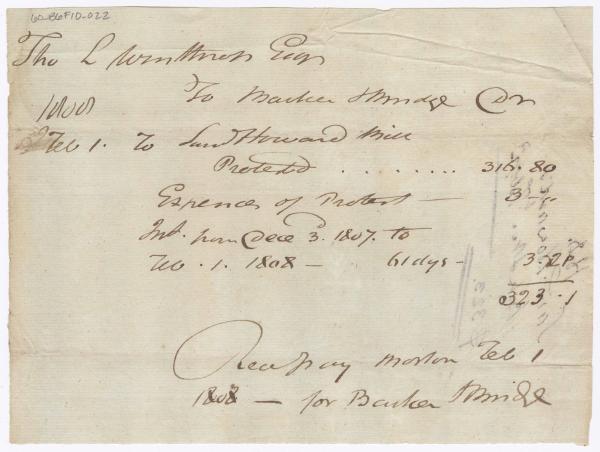 60-86F10-022
Tho L Winthrop Esqr
1808 To Barker & Bridge Dr
Feb 1. To Saml Howard Bill
Protested . . . . . . . . 316.80
Expences of Protest — 3 "
Int. from Dece 3d. 1807. to
Feb. 1. 1808 — 61 dys - 3.21
323.1
Recd pay Boston Feb 1
1808 — for Barker & Bridge